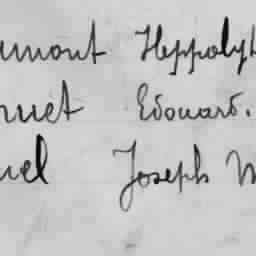 umont Heppolyt
nuet Edouard.
uel Joseph M